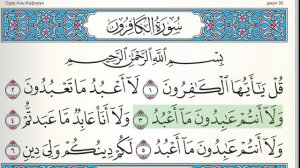 Сура Аль-Кафирун джуз 30
سُورَةُ الكَافِرُونَ
بِسْمِ اللَّهِ الرَّحْمَٰنِ الرَّحِيمِ
قُلْ يَٰٓأَيُّهَا ٱلْكَٰفِرُونَ ١ لَآ أَعْبُدُ مَا تَعْبُدُونَ ٢
وَلَآ أَنتُمْ عَٰبِدُونَ مَآ أَعْبُدُ ٣ وَلَآ أَنَا۠ عَابِدٌ مَّا عَبَدتُّمْ ٤
وَلَآ أَنتُمْ عَٰبِدُونَ مَآ أَعْبُدُ ٥ لَكُمْ دِينُكُمْ وَلِىَ دِينِ ٦